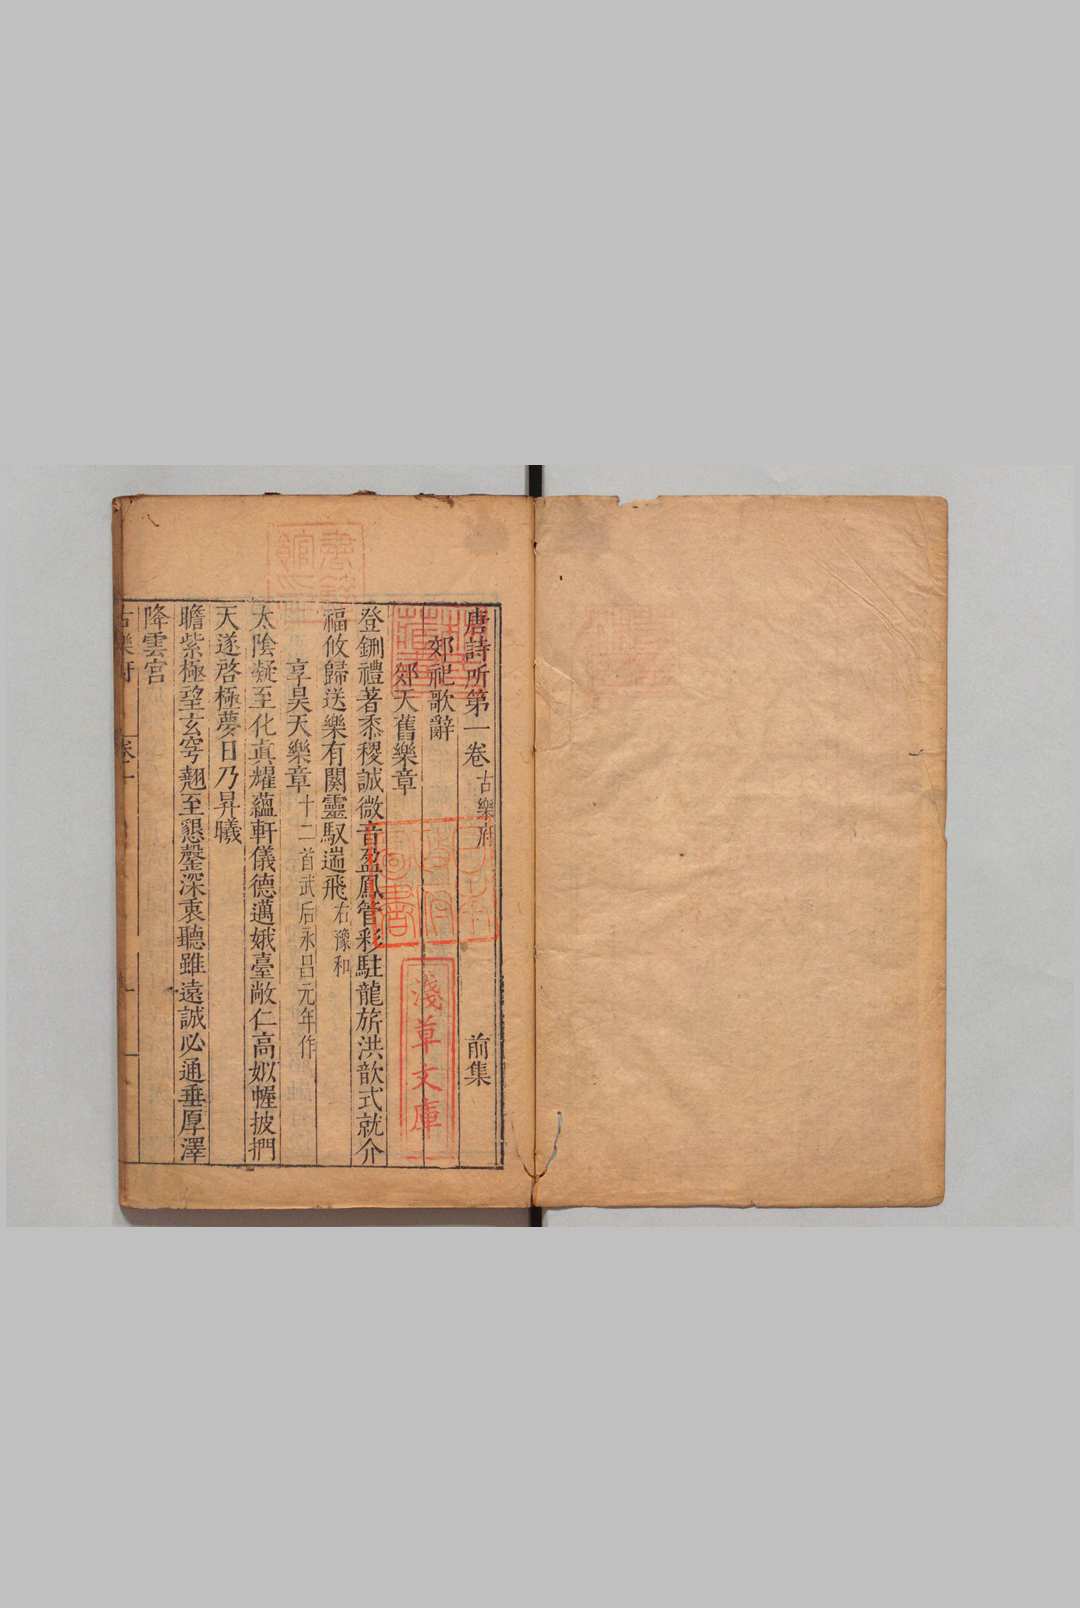 唐詩所第一卷 古樂府 前集
郊祀歌辭
郊天舊樂章
登歌禮著黍稷誠微音盈鳳管彩駐龍旂洪歆式就介
福攸歸送樂有闋靈馭遄飛 右豫和
享昊天樂章 十二首武后永昌元年作
太陰凝至化真耀蘊軒儀德邁娥臺敞仁高姒幄披捫
天遂啓極夢日乃昇曦
瞻紫極望玄穹翹至懇罄深衷聽雖遠誠必通垂厚澤
降雲宮
古樂府 卷一
淺草文庫